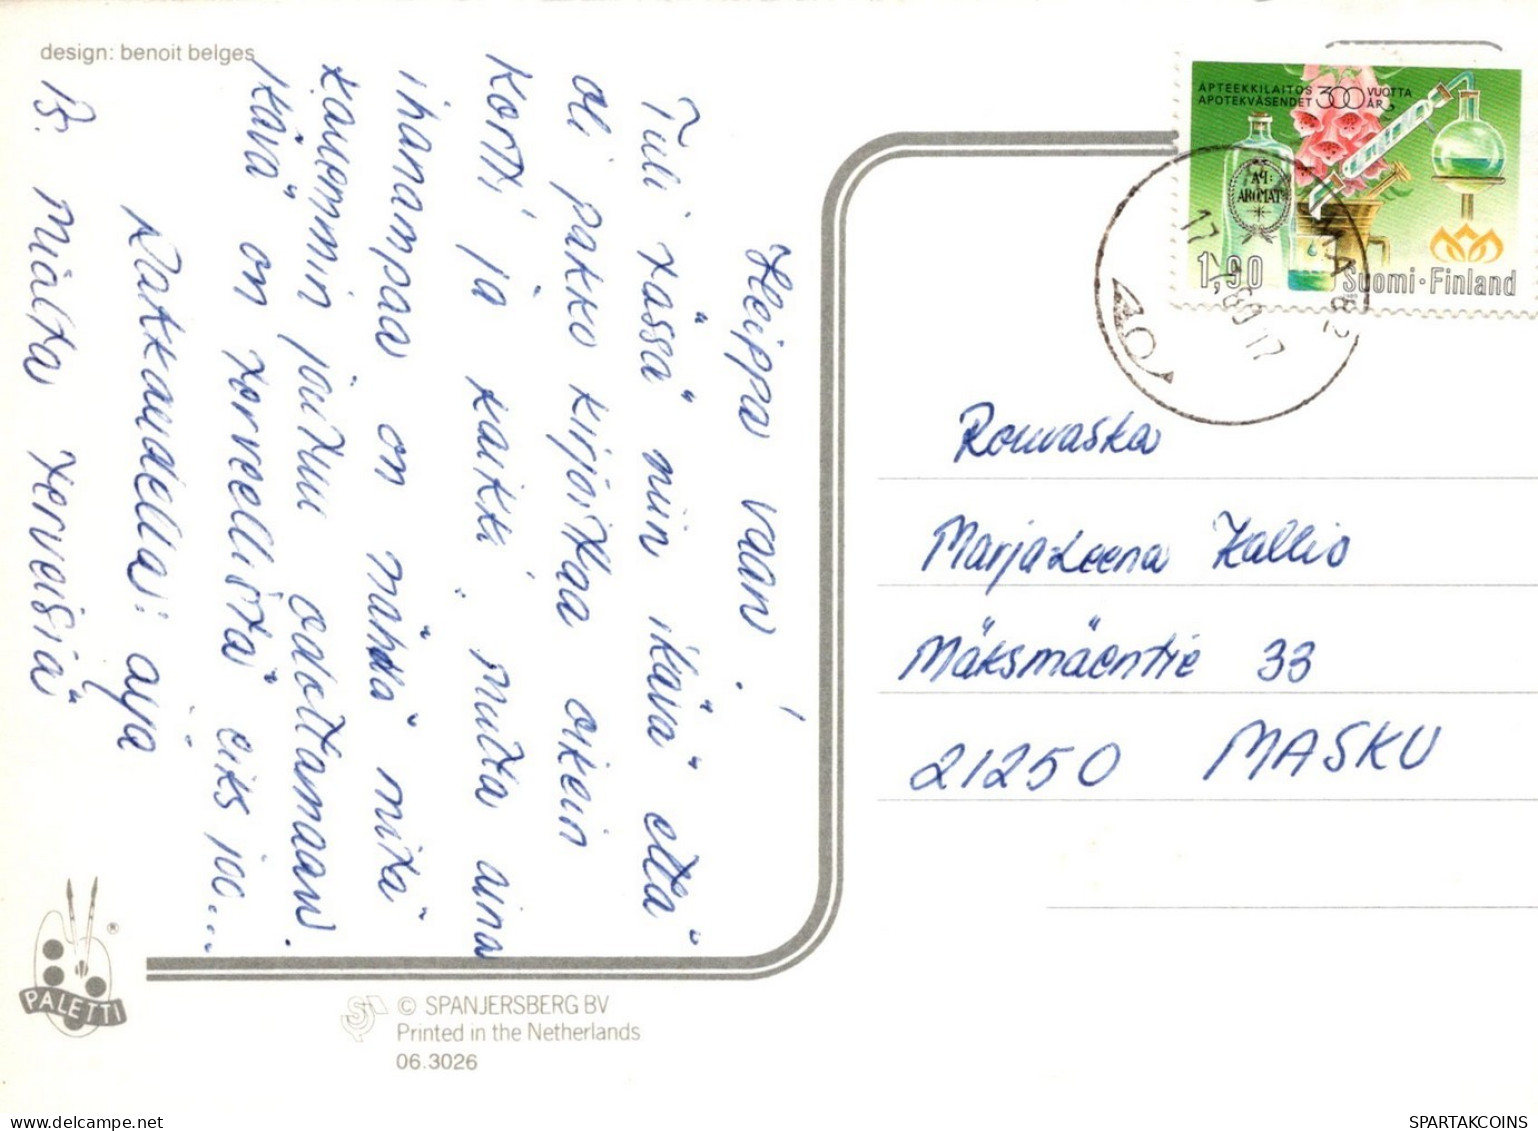 design: benoit belges
Heippa vaan!
Tuli tässä niin ikävä että
oli pakko kirjoittaa oikein
kortti ja kaikki, mutta aina
ihanampaa on nähdä mitä
kauemmin joutuu odottamaan.
Ikävä on terveellistä eiks joo...
Rakkaudella: äijä
Ps. muilta terveisiä
APTEEKKILAITOS 300 VUOTTA
APOTEKVÄSENDET ÅR
AQ:
AROMAT
1,90 Suomi-Finland
Rouvaska
MarjaLeena Kallio
Mäksmäentie 33
21250 MASKU
PALETTI ®
© SPANJERSBERG BV
Printed in the Netherlands
06.3026
SPARTAKCOINS